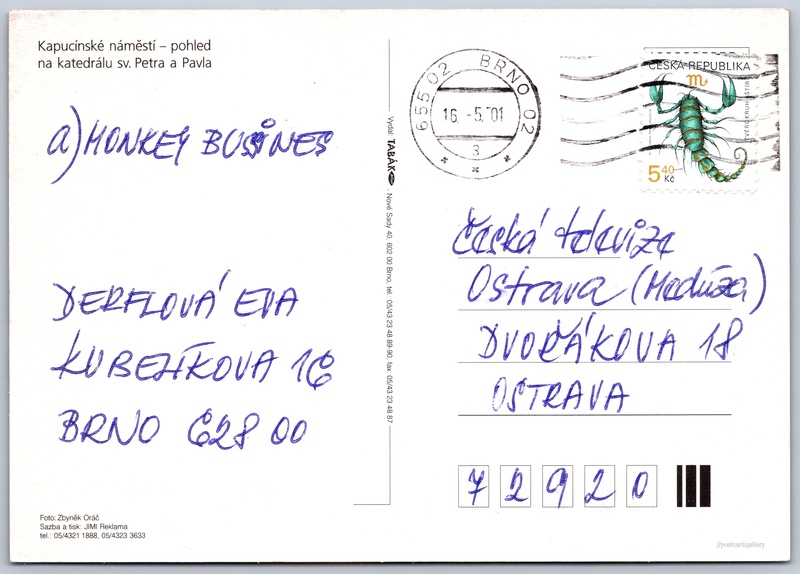 Kapucínské náměstí – pohled
na katedrálu sv. Petra a Pavla
a) MONKEY BUSINES
DERFLOVÁ EVA
KUBELÍKOVA 16
BRNO 628 00
Foto: Zbyněk Oráč
Sazba a tisk: JIMI Reklama
tel.: 05/4321 1888, 05/4323 3633
Vydal: TABÁK Nové Sady 40, 602 00 Brno, tel. 05/43 23 48 89-90, fax: 05/43 23 48 87
655 02 BRNO 02
16. -5. '01
s
ČESKÁ REPUBLIKA
♏
ZVĚROKRUH - ŠTÍR
5 40 Kč
Česká televize
Ostrava (Medúza)
DVOŘÁKOVA 18
OSTRAVA
7 2 9 2 0